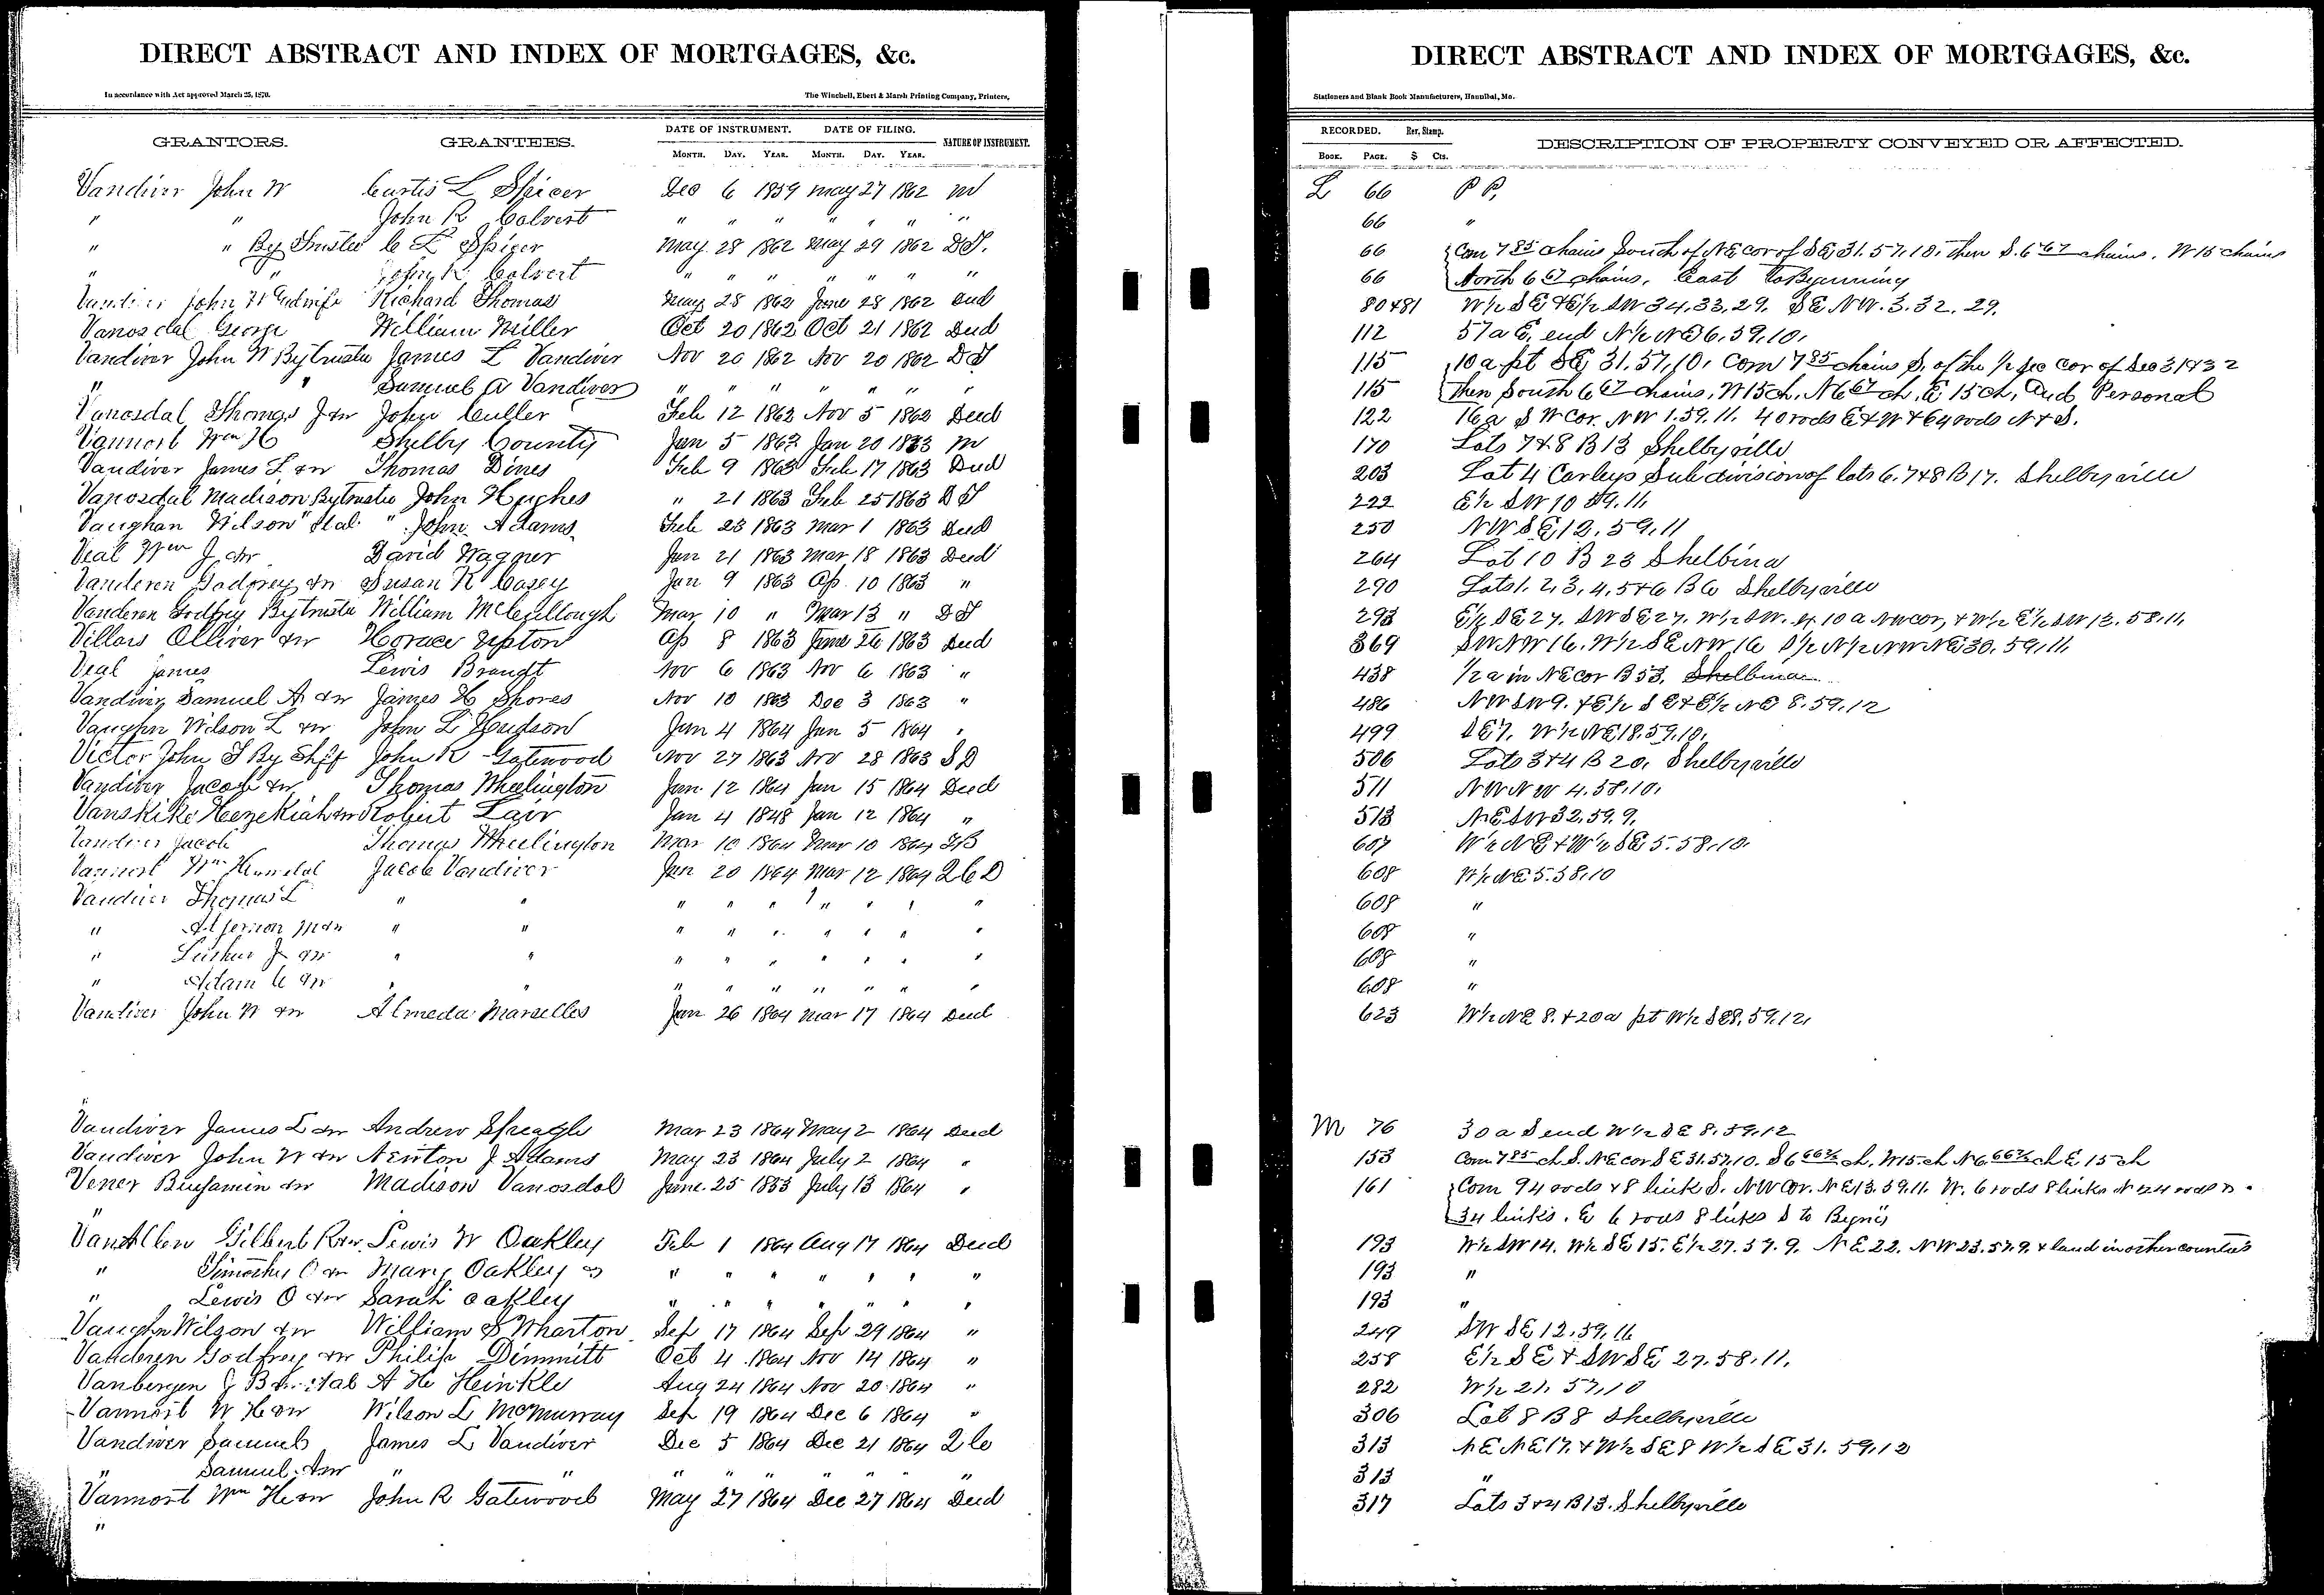 DIRECT ABSTRACT AND INDEX OF MORTGAGES, &c.
In accordance with Act approved March 25, 1870. The Winchell, Ebert & Marsh Printing Company, Printers,
GRANTORS. GRANTEES. DATE OF INSTRUMENT. DATE OF FILING. NATURE OF INSTRUMENT.
MONTH. DAY. YEAR. MONTH. DAY. YEAR.
Vandiver John W Curtis L Spicer Dec 6 1859 May 27 1862 M
" " John R Calvert " " " " " " "
" " By Trustee C L Spicer May 28 1862 May 29 1862 DT.
" " John R Calvert " " " " " " "
Vandiver John W & wife Richard Thomas May 28 1862 June 28 1862 Deed
Vanosdal George William Miller Oct 20 1862 Oct 21 1862 Deed
Vandiver John W By trustee James L Vandiver Nov 20 1862 Nov 20 1862 DT
" " Samuel A Vandiver " " " " " " "
Vanosdal Thomas J &w John Culler Feb 12 1862 Nov 5 1862 Deed
Vannort Wm H Shelby County Jan 5 1863 Jan 20 1863 M
Vandiver James L &w Thomas Dines Feb 9 1863 Feb 17 1863 Deed
Vanosdal Madison By trustee John Hughes " 21 1863 Feb 25 1863 DT
Vaughan Wilson et al " John Adams Feb 23 1863 Mar 1 1863 Deed
Veal Wm J &w David Wagner Jan 21 1863 Mar 18 1863 Deed
Vanderen Godfrey &w Susan R Casey Jan 9 1863 Ap 10 1863 "
Vanderen Godfrey By trustee William McCullough Mar 10 " Mar 13 " DT
Villars Olliver &w Horace Upton Ap 8 1863 June 26 1863 Deed
Veal James Lewis Brandt Nov 6 1863 Nov 6 1863 "
Vandiver Samuel A &w James H Shores Nov 10 1863 Dec 3 1863 "
Vaughn Wilson L &w John L Hudson Jan 4 1864 Jan 5 1864 "
Victor John S By Shff John R Gatewood Nov 27 1863 Nov 28 1863 SD
Vandiver Jacob &w Thomas Wheelington Jan 12 1864 Jan 15 1864 Deed
Vanskike Hezekiah &w Robert Lair Jan 4 1848 Jan 12 1864 "
Vandiver Jacob Thomas Wheelington Mar 10 1864 Mar 10 1864 TB
Vannort Wm H &w et al Jacob Vandiver Jan 20 1864 Mar 12 1864 QCD
Vandiver Thomas L " " " " " " " " "
" Alferion M &w " " " " " " " " "
" Luther J &w " " " " " " " " "
" Adam C &w " " " " " " " " "
Vandiver John W &w Almeda Marselles Jan 26 1864 Mar 17 1864 Deed
Vandiver James L &w Andrew Spreagle Mar 23 1864 May 2 1864 Deed
Vandiver John W &w Newton J Adams May 23 1864 July 2 1864 "
Vener Benjamin &w Madison Vanosdol June 25 1853 July 13 1864 "
VanAllen Gilbert R &w Lewis W Oakley Feb 1 1864 Aug 17 1864 Deed
" Timothy O &w Mary Oakley " " " " " " "
" Lewis O &w Sarah Oakley " " " " " " "
Vaughn Wilson &w William S Wharton Sep 17 1864 Sep 29 1864 "
Vanderen Godfrey &w Philip Dimmitt Oct 4 1864 Nov 14 1864 "
Vanbergen J B et al A H Heinkle Aug 24 1864 Nov 20 1864 "
Vannort W H &w Wilson L McMurray Sep 19 1864 Dec 6 1864 "
Vandiver Samuel James L Vandiver Dec 5 1864 Dec 21 1864 QC
" Samuel A &w " " " " " " " " "
Vannort Wm H &w John R Gatewood May 27 1864 Dec 27 1864 Deed
"
DIRECT ABSTRACT AND INDEX OF MORTGAGES, &c.
Stationers and Blank Book Manufacturers, Hannibal, Mo.
RECORDED. Rev. Stamp. DESCRIPTION OF PROPERTY CONVEYED OR AFFECTED.
BOOK. PAGE. $ Cts.
L 66 P P,
66 "
66 Com 7 85 chains South of NE cor of SE 31.57.10. then S. 6 67 chains. W 15 chains
66 North 6 67 chains, East to Beginning
80 & 81 W½ SE & E½ SW 34.33.29. SE NW. 3.32.29.
112 57a E. end N½ NE 6.59.10.
115 10a pt SE 31.57.10. Com 7 85 chains S. of the ½ sec cor of Sec 31 & 32
115 then South 6 67 chains, W 15 ch, N 6 67 ch, E 15 ch, and Personal
122 16a SW Cor. NW 1.59.11. 40 rods E & W & 64 rods N & S.
170 Lots 7 & 8 B 13 Shelbyville
203 Lot 4 Carleys Subdivision of lots 6.7 & 8 B 17. Shelbyville
222 E½ SW 10 59.11.
250 NW SE 12.59.11
264 Lot 10 B 23 Shelbina
290 Lots 1.2,3,4,5 & 6 B 6 Shelbyville
293 E½ SE 27. SW SE 27. W½ SW. 10a NW cor, & W½ E½ SW 13.58.11.
369 SW NW 16. W½ SE NW 16 S½ N½ NW NE 30.59.11.
438 ½ a in NE cor B 53, Shelbina
486 NW SW 9. & E½ SE & E½ NE 8.59.12
499 W½ NE 18.59.10.
506 Lots 3 & 4 B 20, Shelbyville
511 NW NW 4.58.10.
513 NE SW 32.59.9.
607 W½ NE & W½ SE 5.58.10.
608 W½ NE 5.58.10
608 "
608 "
608 "
608 "
623 W½ NE 8. & 20a pt W½ SE 8.59.12.
M 76 30a S end W½ SE 8.59.12
153 Com 7 85 ch S. NE cor SE 31.57.10. S 6 66⅔ ch. W 15 ch N 6 66⅔ ch E 15 ch
161 Com 94 rods & 8 links S. NW cor. NE 13.59.11. W. 6 rods 8 links N 24 rods &
34 links. E 6 rods 8 links S to Begn'g
193 W½ SW 14. W½ SE 15. E½ 27.57.9. NE 22. NW 23.57.9. & land in other counties
193 "
193 "
249 SW SE 12.59.11
258 E½ SE & SW SE 27.58.11.
282 W½ 21.57.10
306 Lot 8 B 8 Shelbyville
313 NE NE 17. & W½ SE 8 W½ SE 31.59.12
313 "
317 Lots 3 & 4 B 13. Shelbyville